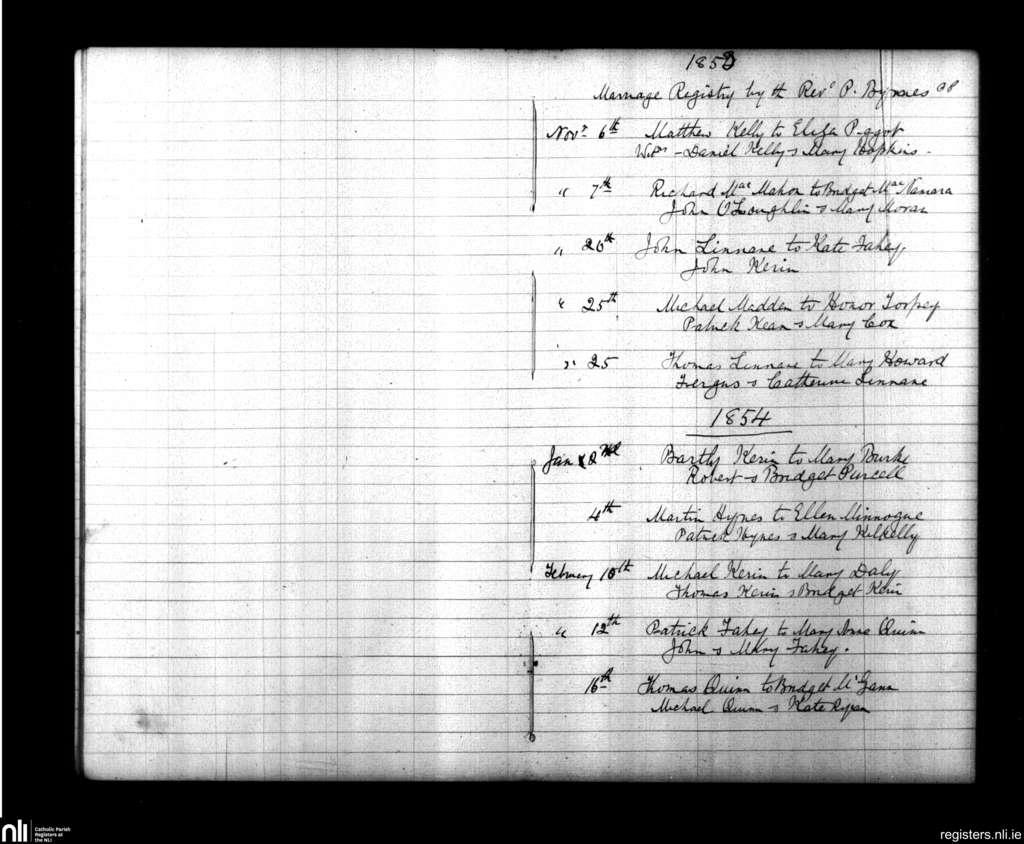 1853
Marriage Registry by the Revd P. Byrnes CP
Novr 6th Matthew Kelly to Eliza Piggot
Wits – Daniel Kelly & Mary Hopkins -
" 7th Richard Mac Mahon to Bridget Mac Namara
John O'Loughlin & Mary Moran
" 20th John Linnane to Kate Fahey,
John Kerin
" 25th Michael Madden to Honor Torpey
Patrick Kean & Mary Cox
" 25 Thomas Linnane to Mary Howard
Fergus & Catherine Linnane
1854
Jan 2nd Bartly Kerin to Mary Burke
Robert & Bridget Purcell
4th Martin Hynes to Ellen Minnogue
Patrick Hynes & Mary Kilkelly
February 10th Michael Kerin to Mary Daly
Thomas Kerin & Bridget Kerin
" 12th Patrick Fahey to Mary Anne Quinn
John & Mary Fahey.
16th Thomas Quinn to Bridget McGann
Michael Quinn & Kate Ryan
nli Catholic Parish
Registers at
the NLI
registers.nli.ie